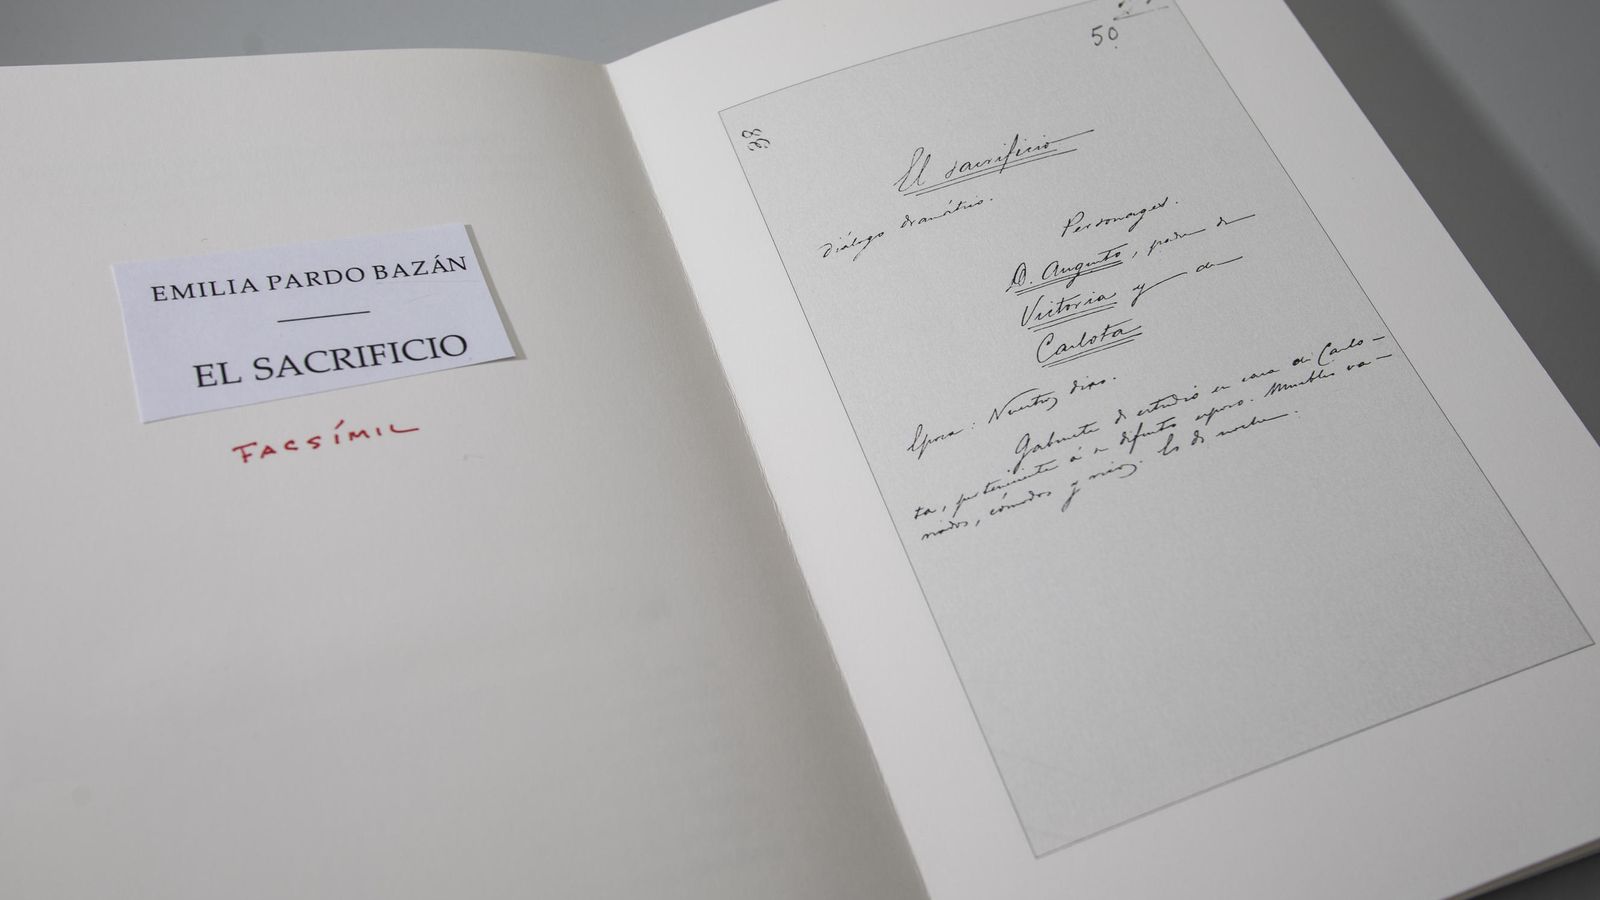 EMILIA PARDO BAZÁN
EL SACRIFICIO
FACSÍMIL
50
38
El sacrificio
diálogo dramático.
Personages.
D. Augusto, padre de
Victoria y de
Carlota
Epoca: Nuestros dias.
Gabinete de estudio en casa de Carlo-
ta, perteneciente á su difunto esposo. Muebles va-
riados, cómodos y ricos. Es de noche.